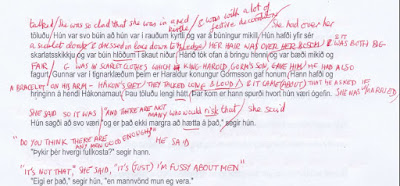 talked. She was so clad that she was in a red kirtle & with a lot of festive decoration. She had over her
töluðu. Hún var svo búin að hún var í rauðum kyrtli og var á búningur mikill. Hún hafði yfir sér
a scarlet cloak & dressed in lace down to ledge. HER HAIR WAS OVER HER BOSOM & IT WAS BOTH BIG &
skarlatsskikkju og var búin hlöðum í skaut niður. Hárið tók ofan á bringu henni og var bæði mikið og
FAIR G WAS IN SCARLET CLOTHES WHICH KING HAROLD, GORM'S SON, GAVE HIM. HE HAD ALSO
fagurt. Gunnar var í tignarklæðum þeim er Haraldur konungur Gormsson gaf honum. Hann hafði og
A BRACELET ON HIS ARM – HAKON'S GIFT. THEY TALKED LONG & LOUD. & IT CAME (ABOUT) THAT HE ASKED IF
hringinn á hendi Hákonarnaut. Þau töluðu lengi hátt. Þar kom er hann spurði hvort hún væri ógefin.
SHE WAS MARRIED
SHE SAID SO IT WAS "AND THERE ARE NOT MANY WHO WOULD RISK THAT" she said
Hún sagði að svo væri "og er það ekki margra að hætta á það," segir hún.
"DO YOU THINK THERE ARE NOT ANY MEN GOOD ENOUGH" HE SAID
"Þykir þér hvergi fullkosta?" segir hann.
"IT'S NOT THAT," SHE SAID, "IT'S (JUST) I'M FUSSY ABOUT MEN"
"Eigi er það," segir hún, "en mannvönd mun eg vera."